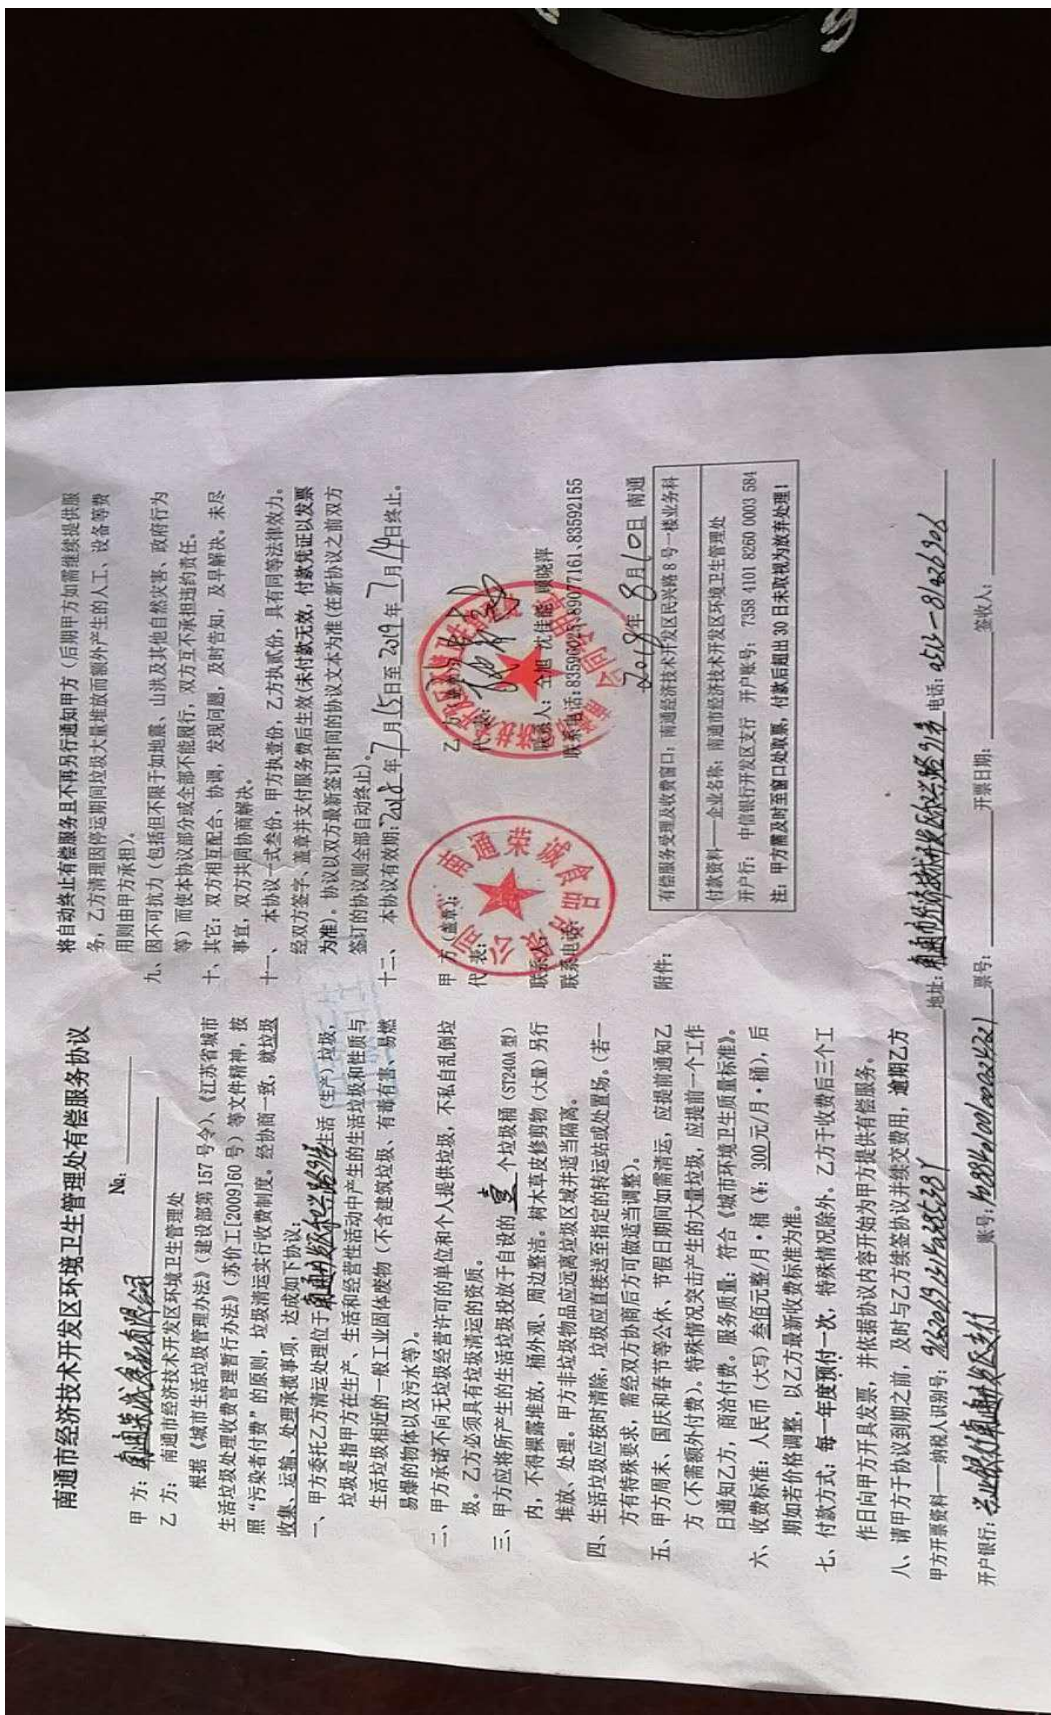 南通市经济技术开发区环境卫生管理处有偿服务协议
№:
甲 方:南通荣诚食品有限公司
乙 方: 南通市经济技术开发区环境卫生管理处
根据《城市生活垃圾管理办法》(建设部第 157 号令)、《江苏省城市
生活垃圾处理收费管理暂行办法》(苏价工[2009]60 号)等文件精神,按
照“污染者付费”的原则,垃圾清运实行收费制度。经协商一致,就垃圾
收集、运输、处理承揽事项,达成如下协议:
一、甲方委托乙方清运处理位于南通开发区和兴路 生活(生产)垃圾,
垃圾是指甲方在生产、生活和经营性活动中产生的生活垃圾和性质与
生活垃圾相近的一般工业固体废物(不含建筑垃圾、有毒有害、易燃
易爆的物体以及污水等)。
二、甲方承诺不向无垃圾经营许可的单位和个人提供垃圾,不私自乱倒垃
圾。乙方必须具有垃圾清运的资质。
三、甲方应将所产生的生活垃圾投放于自设的 壹 个垃圾桶(ST240A 型)
内,不得裸露堆放,桶外观、周边整洁。树木草皮修剪物(大量)另行
堆放、处理。甲方非垃圾物品应远离垃圾区域并适当隔离。
四、生活垃圾应按时清除,垃圾应直接送至指定的转运站或处置场。(若一
方有特殊要求,需经双方协商后方可做适当调整)。
五、甲方周末、国庆和春节等公休、节假日期间如需清运,应提前通知乙
方(不需额外付费)。特殊情况突击产生的大量垃圾,应提前一个工作
日通知乙方,商洽付费。服务质量:符合《城市环境卫生质量标准》。
六、收费标准:人民币(大写)叁佰元整/月·桶(¥: 300 元/月·桶),后
期如若价格调整,以乙方最新收费标准为准。
七、付款方式:每一年度预付一次,特殊情况除外。乙方于收费后三个工
作日向甲方开具发票,并依据协议内容开始为甲方提供有偿服务。
八、请甲方于协议到期之前,及时与乙方续签协议并续交费用,逾期乙方
将自动终止有偿服务且不再另行通知甲方(后期甲方如需继续提供服
务,乙方清理因停运期间垃圾大量堆放而额外产生的人工、设备等费
用则由甲方承担)。
九、因不可抗力(包括但不限于如地震、山洪及其他自然灾害、政府行为
等)而使本协议部分或全部不能履行,双方互不承担违约责任。
十、其它:双方相互配合、协调,发现问题,及时告知,及早解决。未尽
事宜,双方共同协商解决。
十一、 本协议一式叁份,甲方执壹份,乙方执贰份,具有同等法律效力。
经双方签字、盖章并支付服务费后生效(未付款无效,付款凭证以发票
为准)。协议以双方最新签订时间的协议文本为准(在新协议之前双方
签订的协议则全部自动终止)。
十二、 本协议有效期:2018年7月15日至2019年7月14日终止。
甲 方(盖章):
代 表:
联系人:
联系电话:
南通荣诚食品有限公司
乙 方
代 表:
联系人: 仝旭 沈佳能 顾晓萍
联系电话:83596025、89077161、83592155
2018年8月10日 南通
附件:
有偿服务受理及收费窗口:南通经济技术开发区民兴路 8 号一楼业务科
付款资料——企业名称:南通市经济技术开发区环境卫生管理处
开户行: 中信银行开发区支行 开户账号: 7358 4101 8260 0003 584
注:甲方需及时至窗口处取票,付款后超出 30 日未取视为放弃处理!
甲方开票资料——纳税人识别号: 地址:南通市经济技术开发区和兴路 电话:
开户银行:兴业银行南通开发区支行 账号: 票号: 开票日期: 签收人: